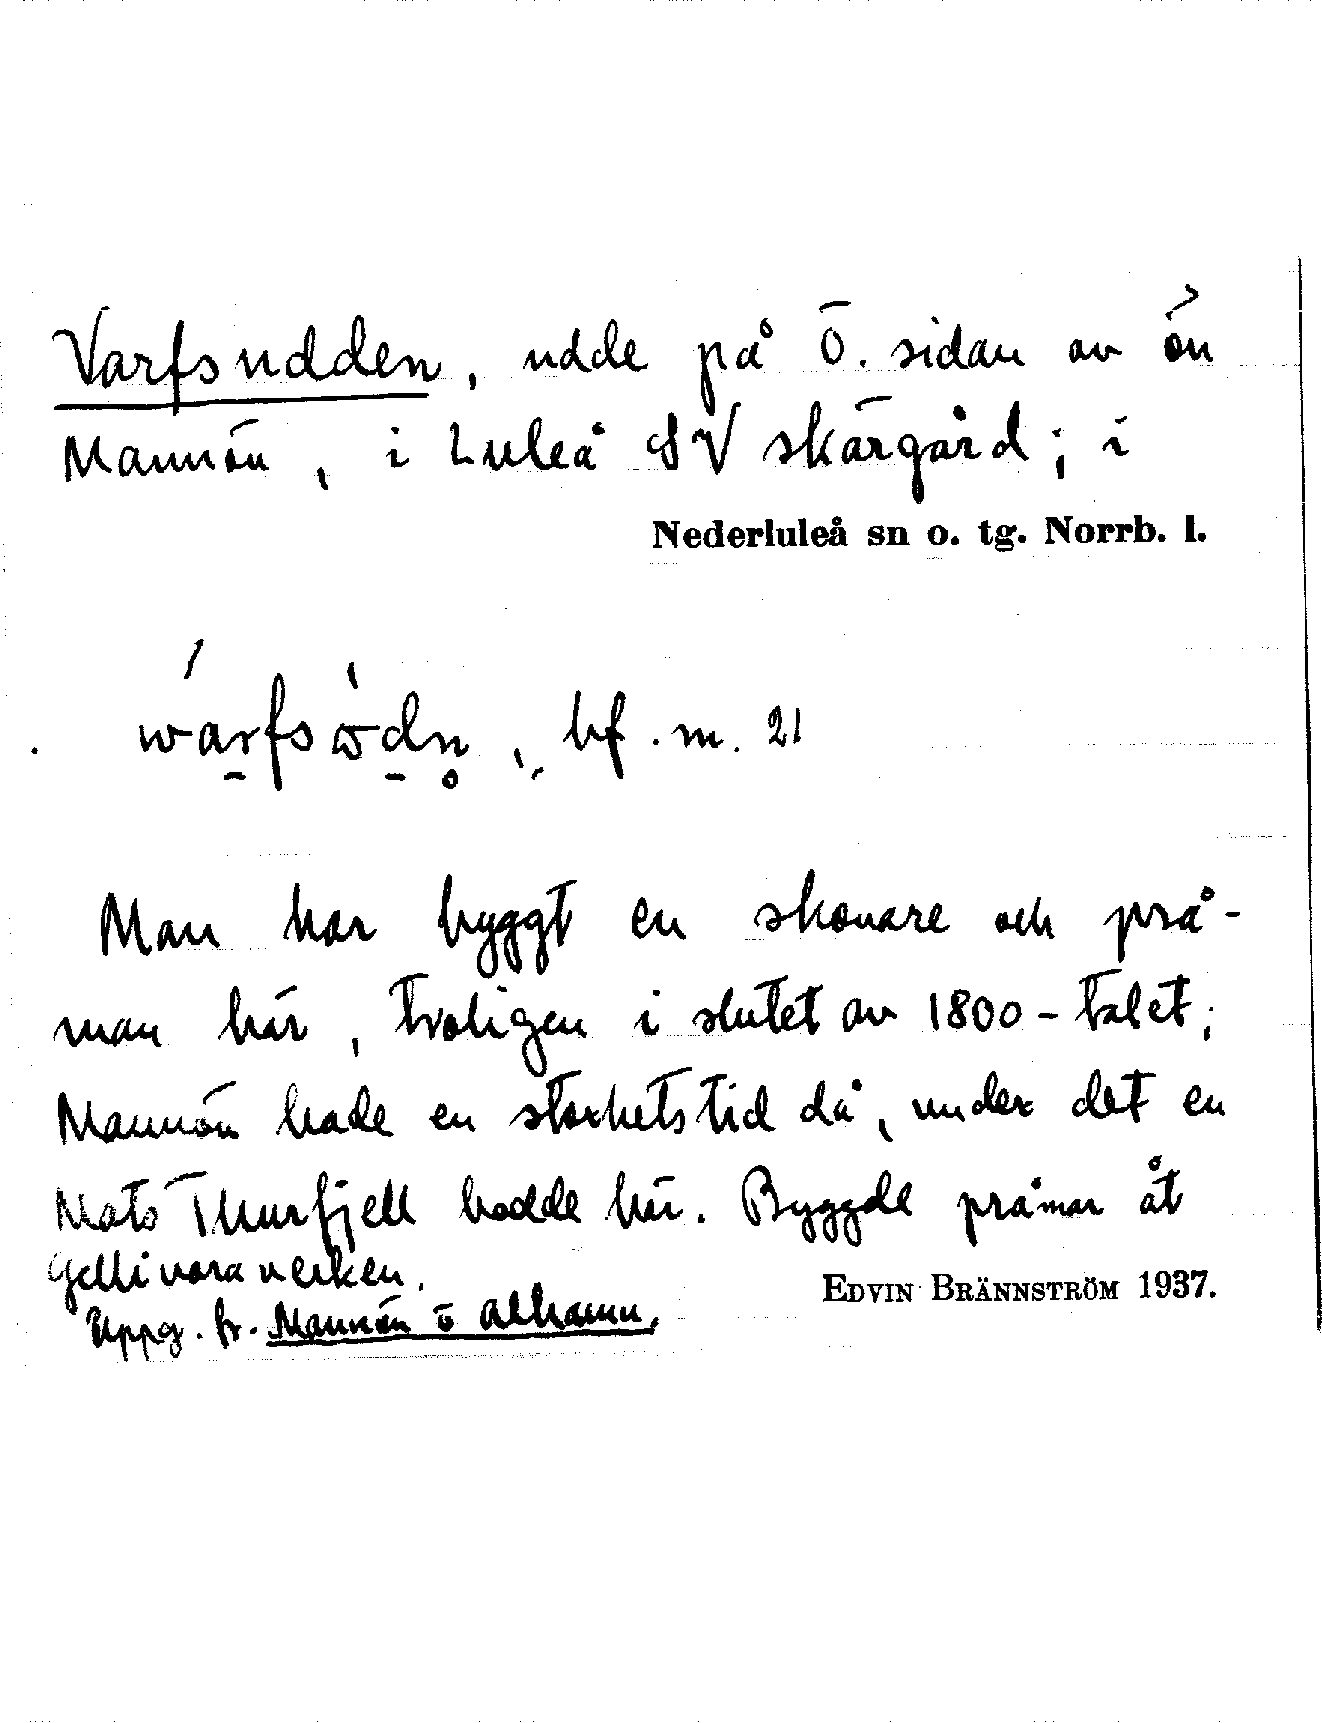 Varfsudden, udde på Ö. sidan av ön
Mannön, i Luleå SV skärgård; i
Nederluleå sn o. tg. Norrb. l.
bf. m. 21
Man har byggt en skonare och prå-
mar här, troligen i slutet av 1800-talet;
Mannön hade en storhetstid då, under det en
Mats Thurfjell bodde här. Byggde pråmar åt
Gellivaraverken.
EDVIN BRÄNNSTRÖM 1937.
Uppg. fr. Mannön o Alhamn.